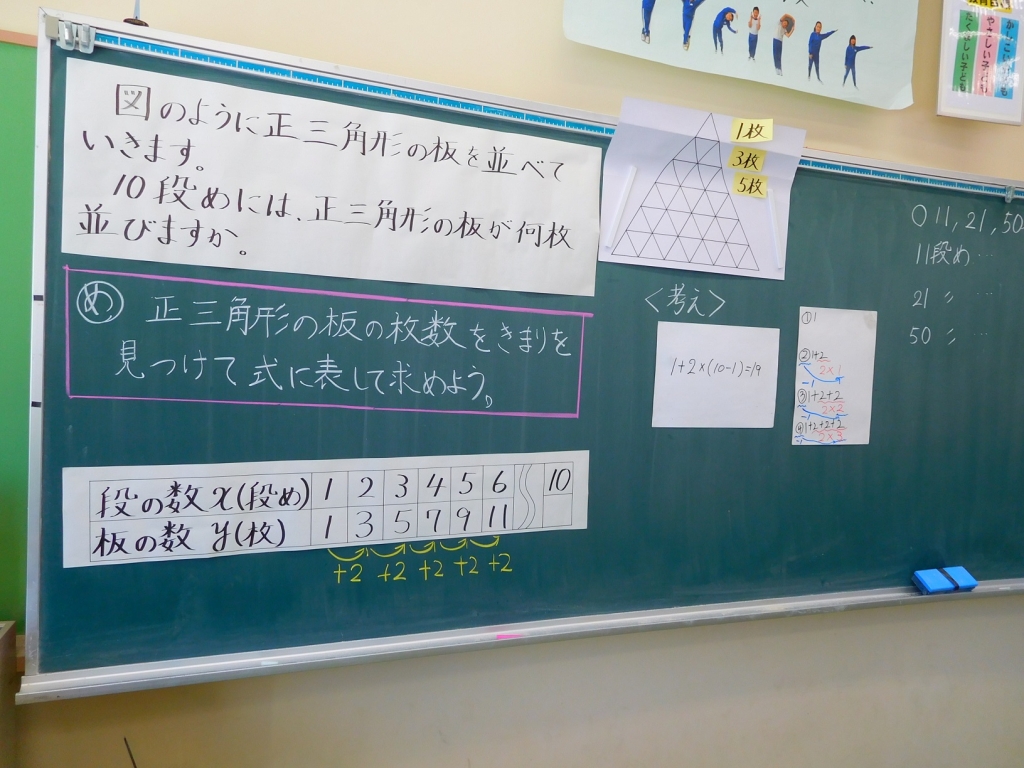 図のように正三角形の板を並べて
いきます。
10段めには、正三角形の板が何枚
並びますか。
め 正三角形の板の枚数をきまりを
見つけて式に表して求めよう。
段の数 x(段め) 1 2 3 4 5 6 10
板の数 y(枚) 1 3 5 7 9 11
+2 +2 +2 +2 +2
1枚
3枚
5枚
<考え>
1+2×(10-1)=19
① 1
② 1+2
2×1
-1
③ 1+2+2
2×2
-1
④ 1+2+2+2
2×3
-1
○ 11, 21, 50
11段め…
21 〃 …
50 〃 …
かしこい子ども
やさしい子ども
たくましい子ども